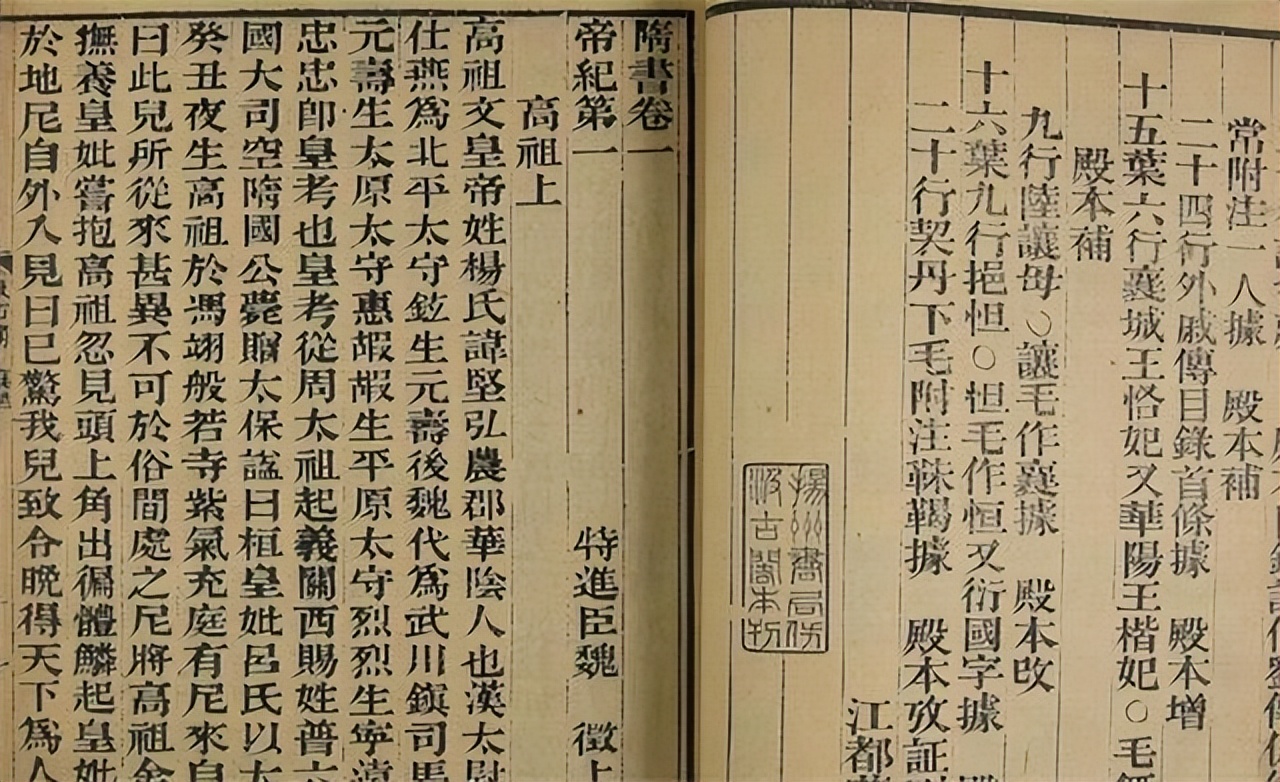 常附注一人據　殿本補
二十四行外戚傳目錄首條據　殿本增
十五葉六行襄城王恪妃又華陽王楷妃○毛
殿本補
九行陸讓母○讓毛作襄據　殿本改
十六葉九行挹怛○怛毛作恒又衍國字據
二十行契丹下毛附注靺鞨據　殿本攷証
江都
揚州書局仿
汲古閣本刊
隋書卷一
帝紀第一　特進臣魏　徵上
高祖上
高祖文皇帝姓楊氏諱堅弘農郡華陰人也漢太尉
仕燕爲北平太守鉉生元壽後魏代爲武川鎮司馬
元壽生太原太守惠嘏嘏生平原太守烈烈生寧遠
忠忠卽皇考也皇考從周太祖起義關西賜姓普六
國大司空隋國公薨贈太保諡曰桓皇妣呂氏以大
癸丑夜生高祖於馮翊般若寺紫氣充庭有尼來自
曰此兒所從來甚異不可於俗間處之尼將高祖舍
撫養皇妣嘗抱高祖忽見頭上角出徧體鱗起皇妣
於地尼自外入見曰已驚我兒致令晚得天下爲人